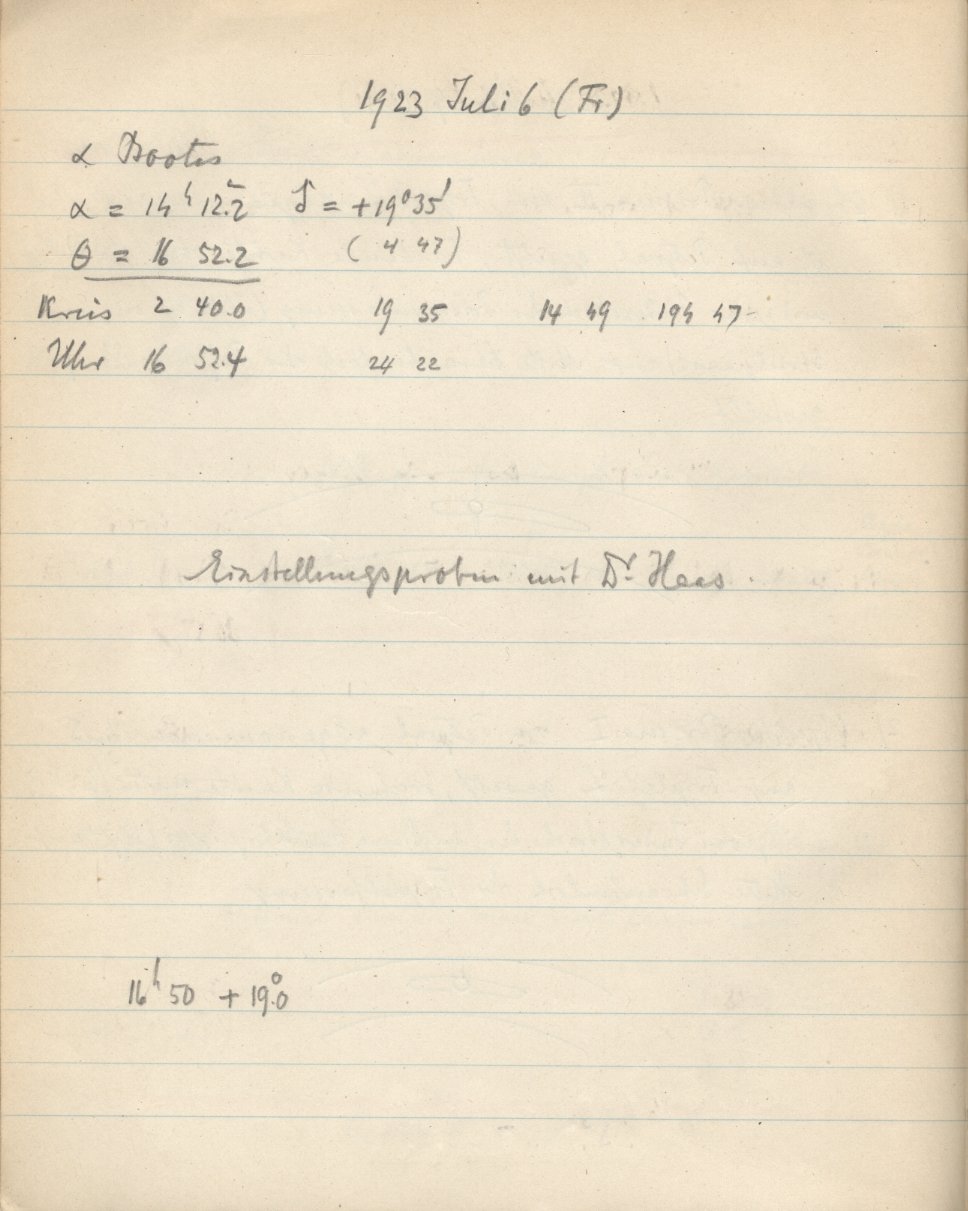 1923 Juli 6 (Fr)
α Bootis
α = 14ʰ 12.ᵐ2 δ = +19°35'
θ = 16 52.2 (4 47)
Kreis 2 40.0 19 35 14 49 194 47
Uhr 16 52.4 24 22
Einstellungsproben mit Dr. Haas.
16ʰ 50 +19.°0